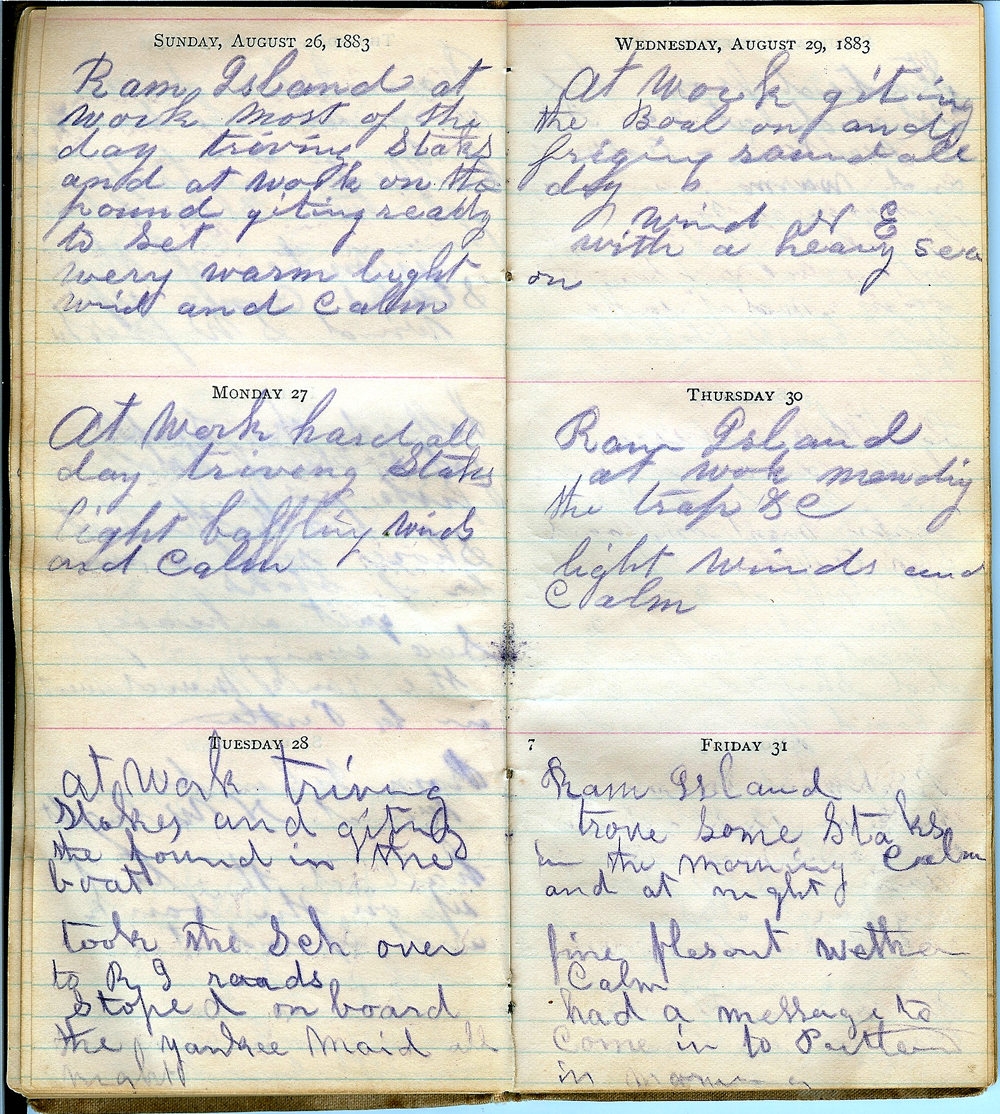 SUNDAY, AUGUST 26, 1883
Ram Island at
work most of the
day triving Staks
and at work on the
pound giting ready
to Set
wery warm light
wind and Calm
MONDAY 27
At Work hard all
day triving Staks
light baffling winds
and Calm
TUESDAY 28
at Work triving
Stakes and giting
the pound in the
boat
took the Sch over
to R I roads
Stoped on board
the yankee Maid all
night
WEDNESDAY, AUGUST 29, 1883
At Work giting
the Boat on and
friging round all
day
wind N E
with a heavy sea
on
THURSDAY 30
Ram Island
at wok mending
the trap &C
light Winds and
Calm
7
FRIDAY 31
Ram Island
trove Some Staks
in the morning Calm
and at night
fine plesant wether
Calm
had a message to
Come in to Portland
in morning